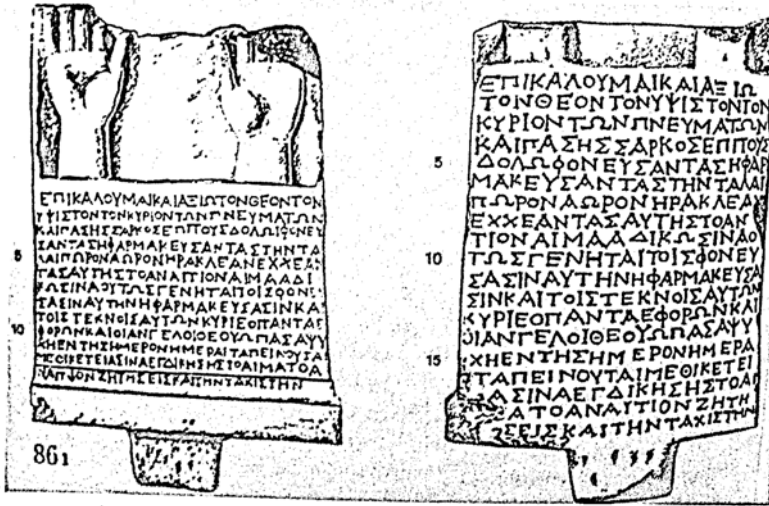 ΕΠΙΚΑΛΟΥΜΑΙΚΑΙΑΞΙΩΤΟΝΘΕΟΝΤΟΝ
ΥΨΙΣΤΟΝΤΟΝΚΥΡΙΟΝΤΩΝΠΝΕΥΜΑΤΩΝ
ΚΑΙΠΑΣΗΣΣΑΡΚΟΣΕΠΙΤΟΥΣΔΟΛΩΙΦΟΝΕΥ
5 ΣΑΝΤΑΣΗΦΑΡΜΑΚΕΥΣΑΝΤΑΣΤΗΝΤΑ
ΛΑΙΠΩΡΟΝΑΩΡΟΝΗΡΑΚΛΕΑΝΕΧΧΕΑΝ
ΤΑΣΑΥΤΗΣΤΟΑΝΑΙΤΙΟΝΑΙΜΑΑΔΙ
ΚΩΣΙΝΑΟΥΤΩΣΓΕΝΗΤΑΙΤΟΙΣΦΟΝΕΥ
ΣΑΣΙΝΑΥΤΗΝΗΦΑΡΜΑΚΕΥΣΑΣΙΝΚΑΙ
ΤΟΙΣΤΕΚΝΟΙΣΑΥΤΩΝΚΥΡΙΕΟΠΑΝΤΑΕ
10 ΦΟΡΩΝΚΑΙΟΙΑΝΓΕΛΟΙΘΕΟΥΩΠΑΣΑΨΥ
ΧΗΕΝΤΗΣΗΜΕΡΟΝΗΜΕΡΑΙΤΑΠΕΙΝΟΥΤΑΙ
ΜΕΘΙΚΕΤΕΙΑΣΙΝΑΕΓΔΙΚΗΣΗΣΤΟΑΙΜΑΤΟΑ
ΝΑΙΤΙΟΝΖΗΤΗΣΕΙΣΚΑΙΤΗΝΤΑΧΙΣΤΗΝ
861
ΕΠΙΚΑΛΟΥΜΑΙΚΑΙΑΞΙΩ
ΤΟΝΘΕΟΝΤΟΝΥΨΙΣΤΟΝΤΟΝ
ΚΥΡΙΟΝΤΩΝΠΝΕΥΜΑΤΩΝ
ΚΑΙΠΑΣΗΣΣΑΡΚΟΣΕΠΙΤΟΥΣ
5 ΔΟΛΩΦΟΝΕΥΣΑΝΤΑΣΗΦΑΡ
ΜΑΚΕΥΣΑΝΤΑΣΤΗΝΤΑΛΑΙ
ΠΩΡΟΝΑΩΡΟΝΗΡΑΚΛΕΑΝ
ΕΧΧΕΑΝΤΑΣΑΥΤΗΣΤΟΑΝΑΙ
ΤΙΟΝΑΙΜΑΑΔΙΚΩΣΙΝΑΟΥ
10 ΤΩΣΓΕΝΗΤΑΙΤΟΙΣΦΟΝΕΥ
ΣΑΣΙΝΑΥΤΗΝΗΦΑΡΜΑΚΕΥΣΑ
ΣΙΝΚΑΙΤΟΙΣΤΕΚΝΟΙΣΑΥΤΩΝ
ΚΥΡΙΕΟΠΑΝΤΑΕΦΟΡΩΝΚΑΙ
ΟΙΑΝΓΕΛΟΙΘΕΟΥΩΠΑΣΑΨΥ
15 ΧΗΕΝΤΗΣΗΜΕΡΟΝΗΜΕΡΑ
ΤΑΠΕΙΝΟΥΤΑΙΜΕΘΙΚΕΤΕΙ
ΑΣΙΝΑΕΓΔΙΚΗΣΗΣΤΟΑΙ
ΜΑΤΟΑΝΑΥΤΙΟΝΖΗΤΗ
ΣΕΙΣΚΑΙΤΗΝΤΑΧΙΣΤΗΝ